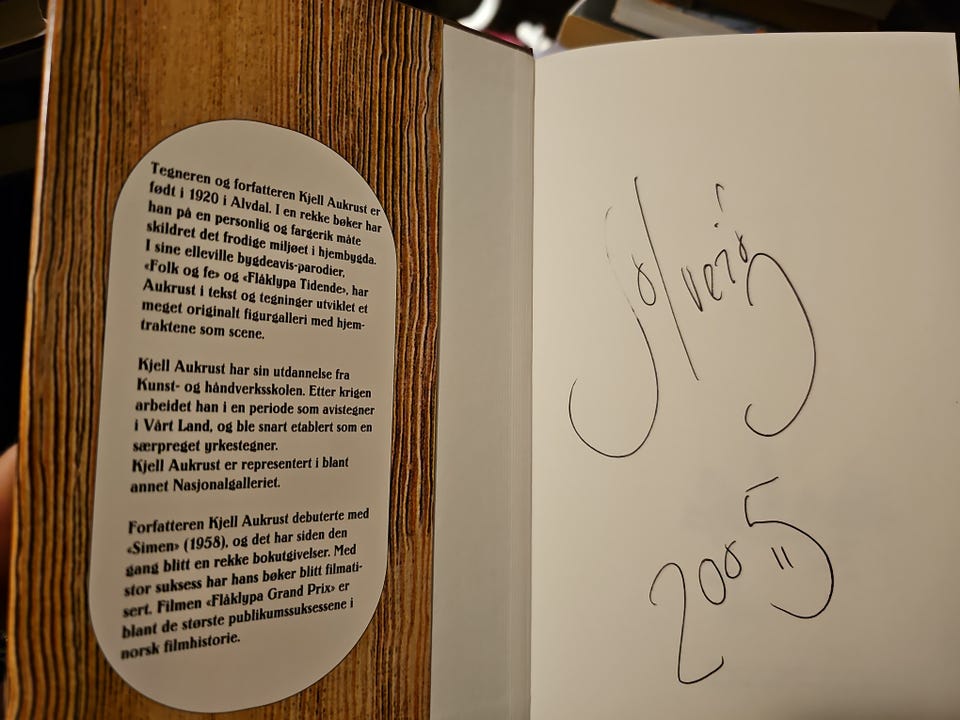 Tegneren og forfatteren Kjell Aukrust er
født i 1920 i Alvdal. I en rekke bøker har
han på en personlig og fargerik måte
skildret det frodige miljøet i hjembygda.
I sine elleville bygdeavis-parodier,
«Folk og fe» og «Flåklypa Tidende», har
Aukrust i tekst og tegninger utviklet et
meget originalt figurgalleri med hjem-
traktene som scene.
Kjell Aukrust har sin utdannelse fra
Kunst- og håndverksskolen. Etter krigen
arbeidet han i en periode som avistegner
i Vårt Land, og ble snart etablert som en
særpreget yrkestegner.
Kjell Aukrust er representert i blant
annet Nasjonalgalleriet.
Forfatteren Kjell Aukrust debuterte med
«Simen» (1958), og det har siden den
gang blitt en rekke bokutgivelser. Med
stor suksess har hans bøker blitt filmati-
sert. Filmen «Flåklypa Grand Prix» er
blant de største publikumssuksessene i
norsk filmhistorie.
Solveig
2005